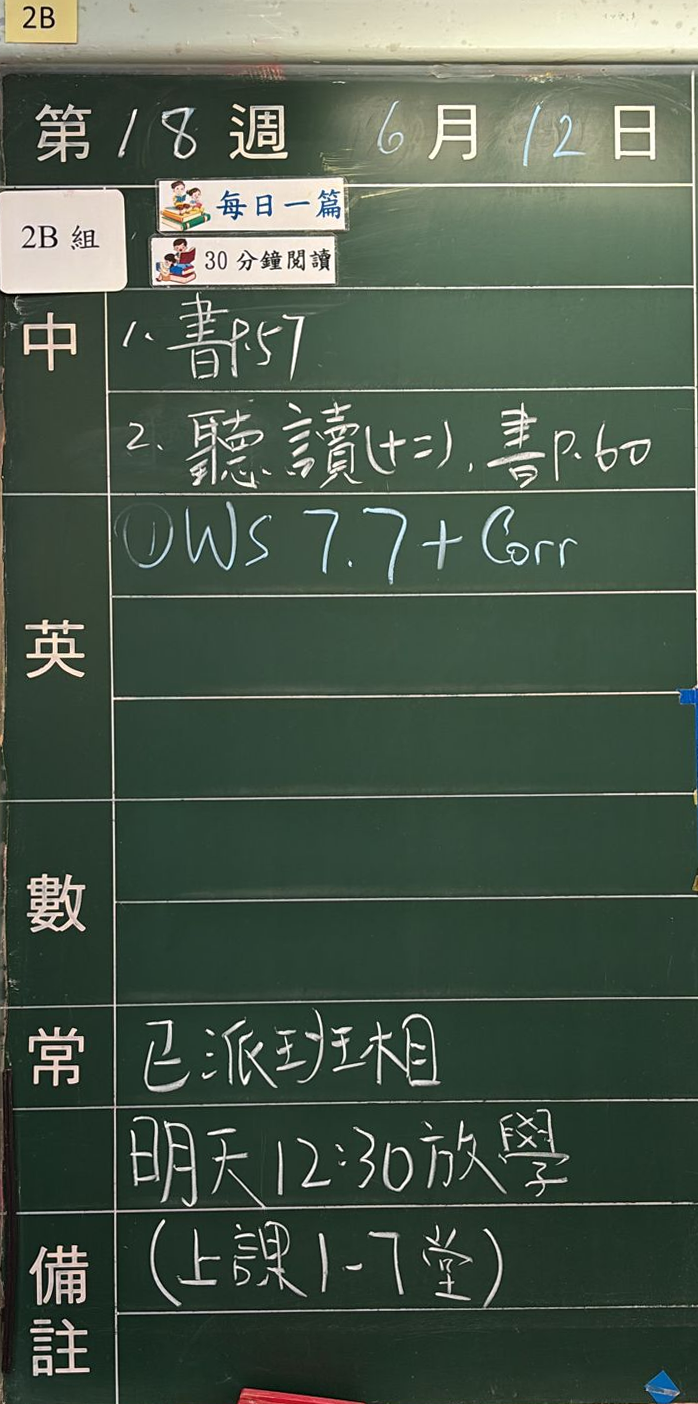 2B
第18週 6月12日
2B 組
每日一篇
30 分鐘閱讀
中
1. 書P.57
2. 聽讀(十二), 書P.60
英
① WS 7.7 + Corr
數
常
已派班相
明天12:30放學
備註
(上課1-7堂)